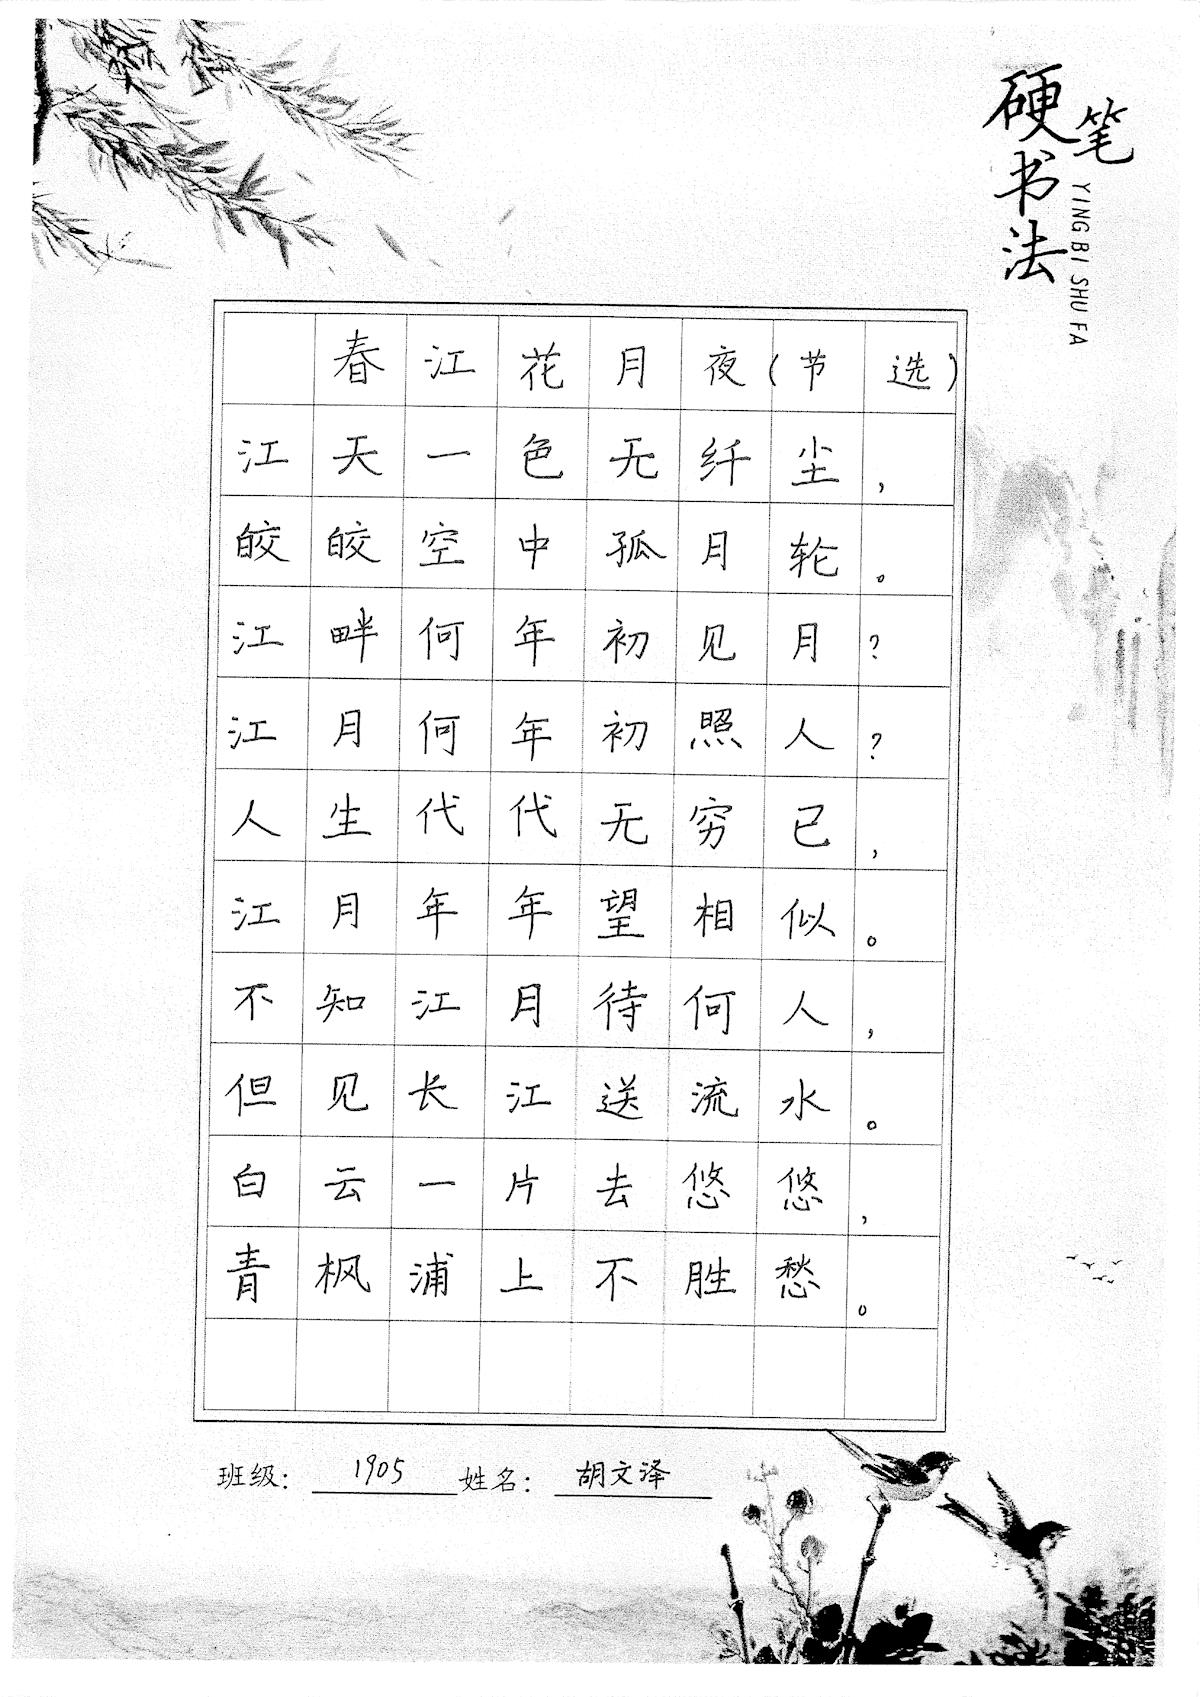 硬笔书法
YING BI SHU FA
春江花月夜（节选）
江天一色无纤尘，
皎皎空中孤月轮。
江畔何年初见月？
江月何年初照人？
人生代代无穷已，
江月年年望相似。
不知江月待何人，
但见长江送流水。
白云一片去悠悠，
青枫浦上不胜愁。
班级：1905 姓名：胡文泽